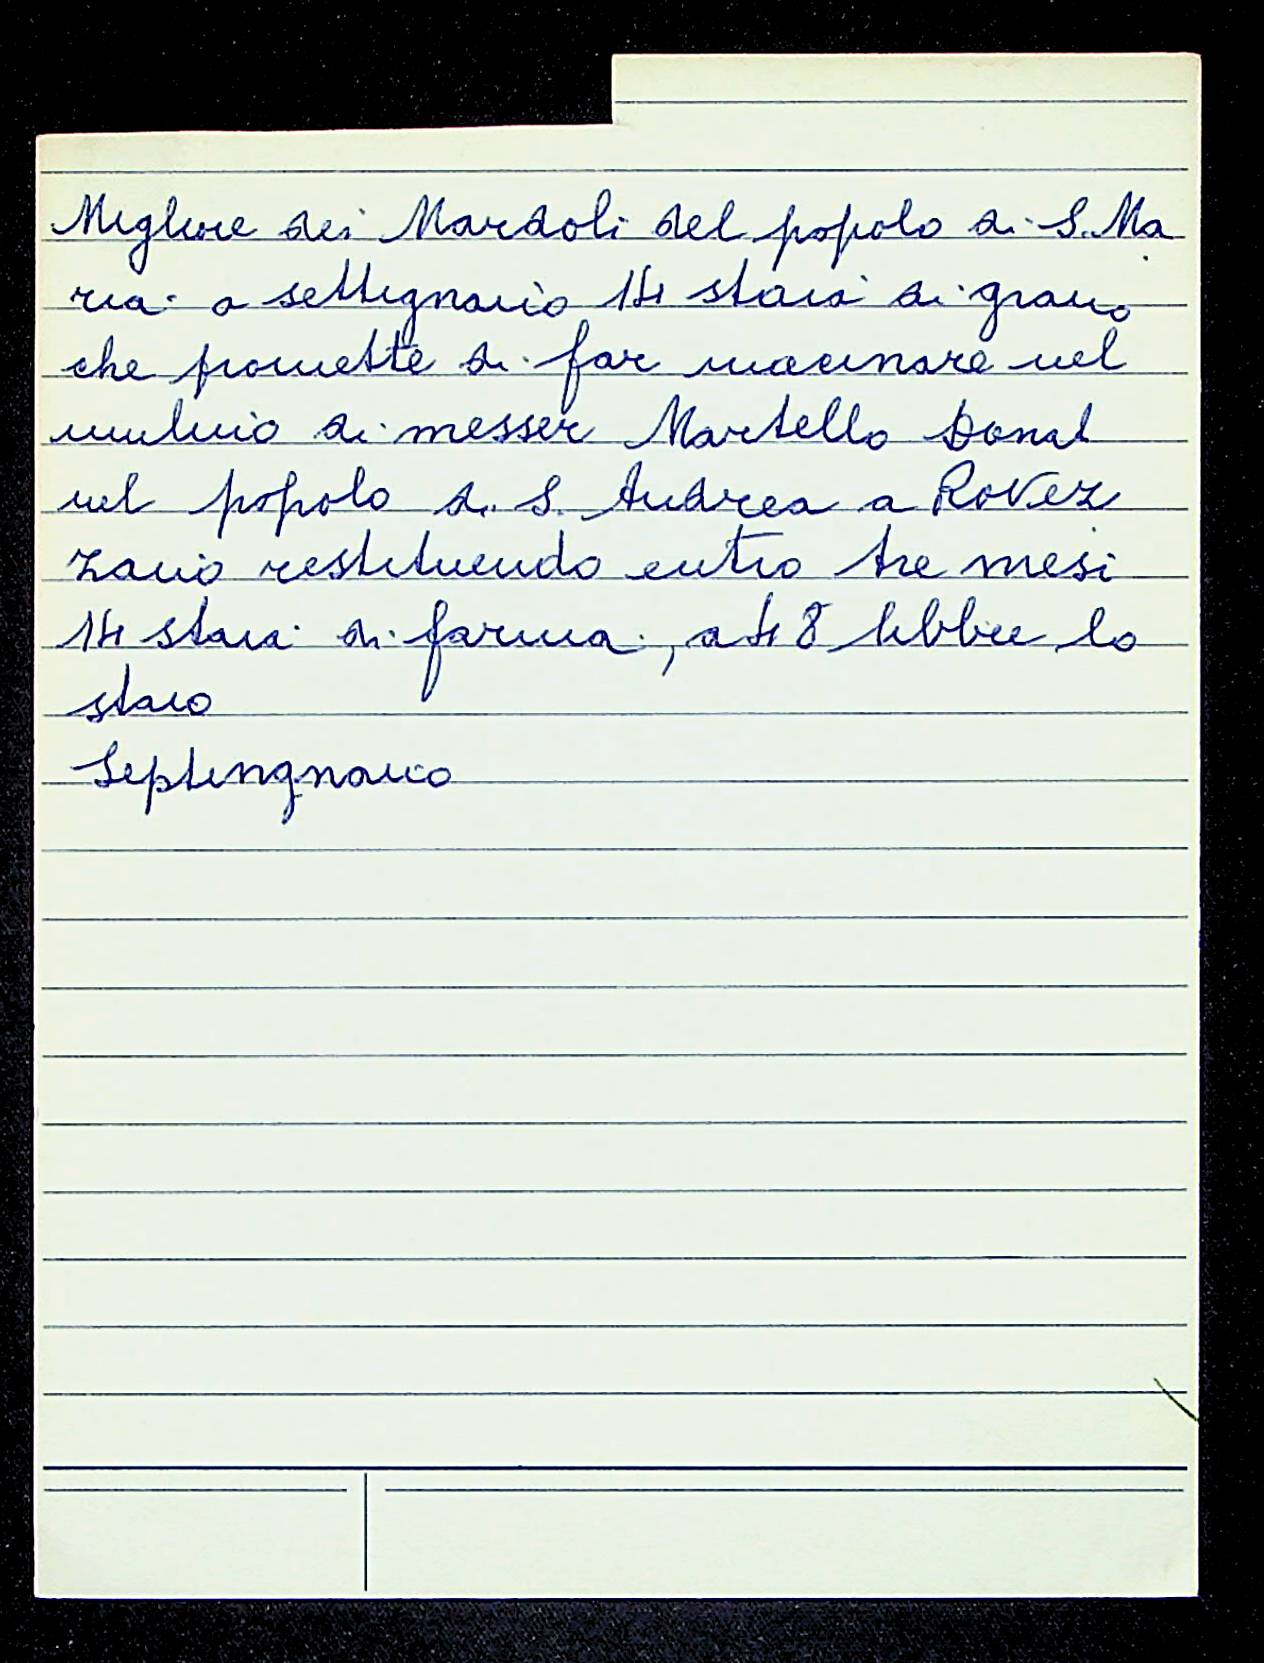 Megliore dei Mardoli del popolo di S. Ma
ria a settignano 14 staia di grano
che promette di far macinare nel
mulino di messer Martello Donat
nel popolo di S. Andrea a Rovez
zano restituendo entro tre mesi
14 staia di farina, a 48 libbre lo
staio
Septingnano